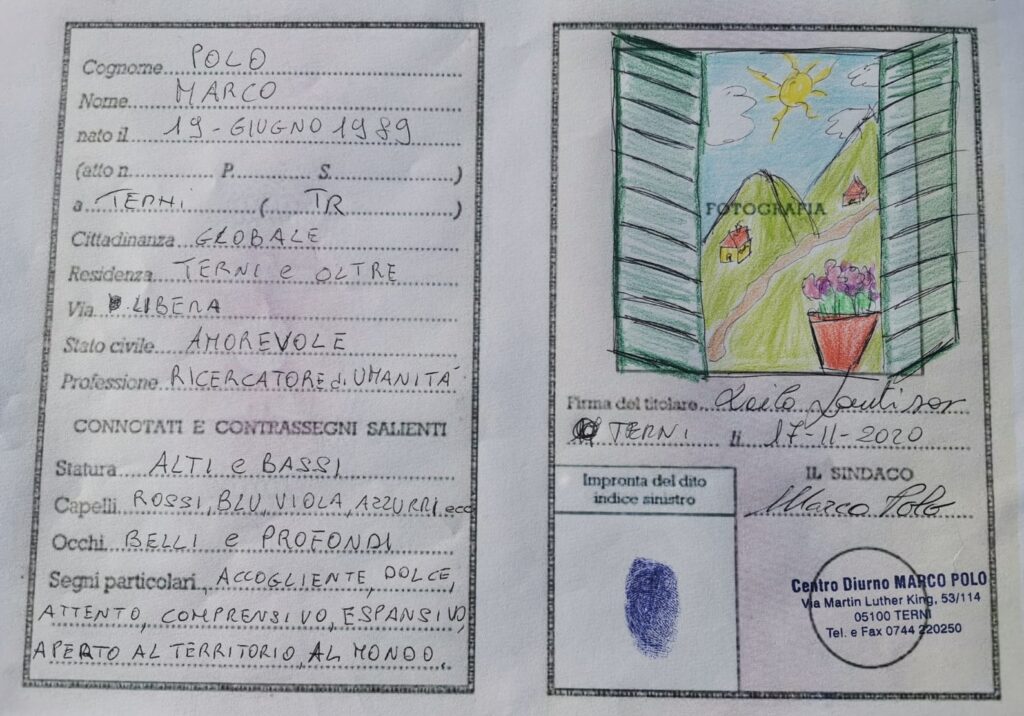 Cognome POLO
Nome MARCO
nato il 19-GIUGNO 1989
(atto n. P. S. )
a TERNI ( TR )
Cittadinanza GLOBALE
Residenza TERNI e OLTRE
Via LIBERA
Stato civile AMOREVOLE
Professione RICERCATORE di UMANITÀ
CONNOTATI E CONTRASSEGNI SALIENTI
Statura ALTI e BASSI
Capelli ROSSI, BLU, VIOLA, AZZURRI ecc
Occhi BELLI e PROFONDI
Segni particolari ACCOGLIENTE, DOLCE,
ATTENTO, COMPRENSIVO, ESPANSIVO,
APERTO AL TERRITORIO, AL MONDO.
FOTOGRAFIA
Firma del titolare
TERNI li 17-11-2020
Impronta del dito
indice sinistro
IL SINDACO
Marco Polo
Centro Diurno MARCO POLO
Via Martin Luther King, 53/114
05100 TERNI
Tel. e Fax 0744 220250